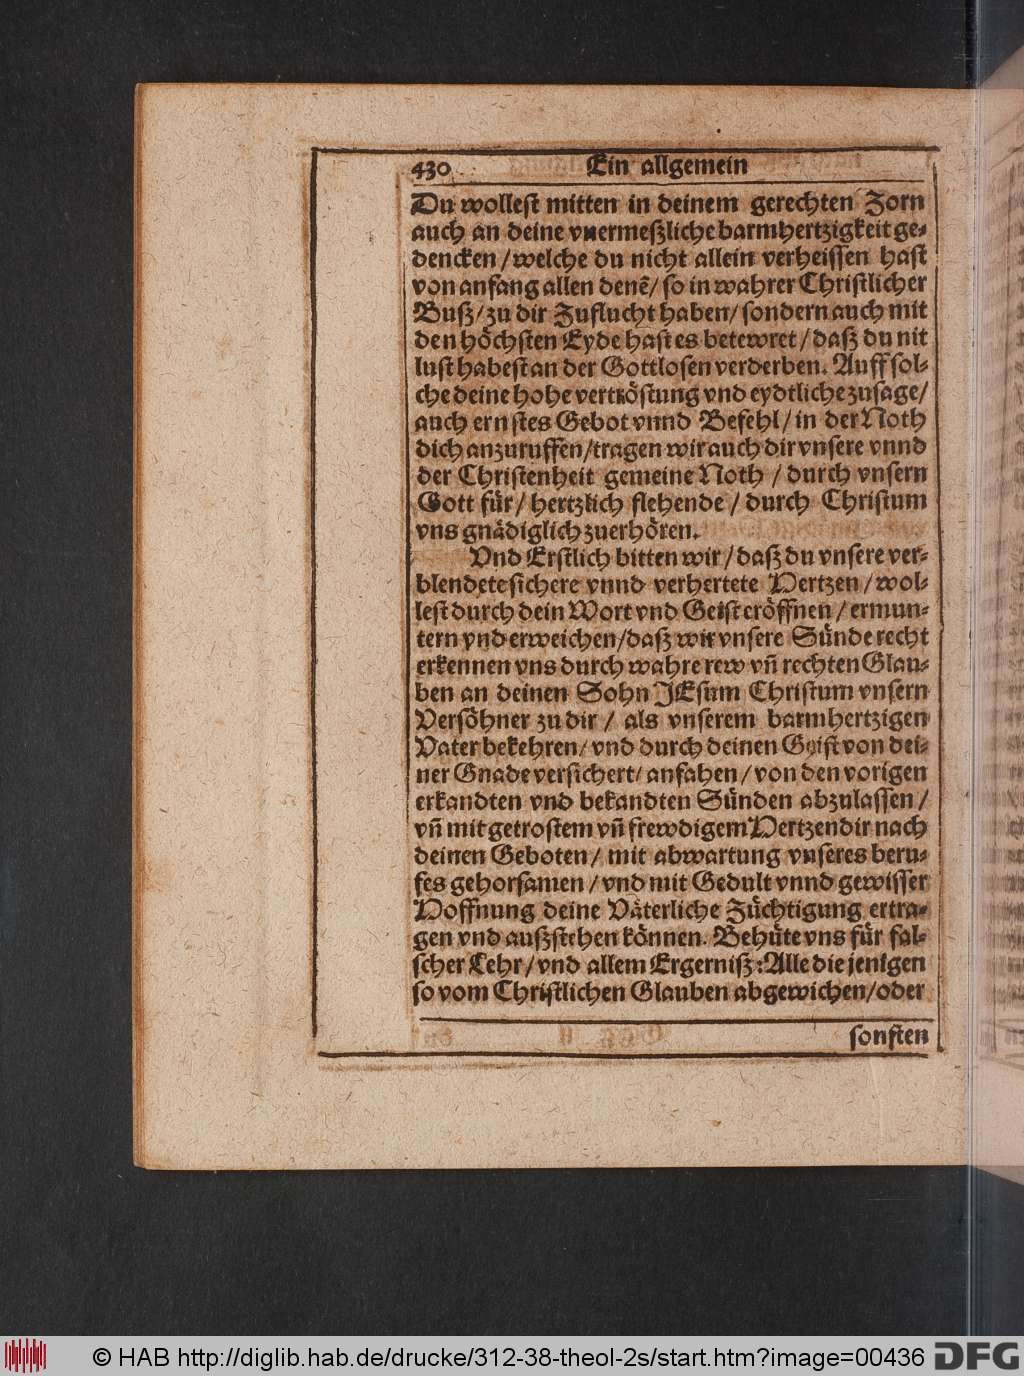 430 Ein allgemein
Du wollest mitten in deinem gerechten Zorn
auch an deine vnermeßliche barmhertzigkeit ge-
dencken / welche du nicht allein verheissen hast
von anfang allen denē / so in wahrer Christlicher
Buß / zu dir Zuflucht haben / sondern auch mit
den höchsten Eyde hast es betewret / daß du nit
lust habest an der Gottlosen verderben. Auff sol-
che deine hohe vertröstung vnd eydtliche zusage /
auch ernstes Gebot vnnd Befehl / in der Noth
dich anzuruffen / tragen wir auch dir vnsere vnnd
der Christenheit gemeine Noth / durch vnsern
Gott für / hertzlich flehende / durch Christum
vns gnädiglich zuerhören.
Vnd Erstlich bitten wir / daß du vnsere ver-
blendete sichere vnnd verhertete Hertzen / wol-
lest durch dein Wort vnd Geist eröffnen / ermun-
tern vnd erweichen / daß wir vnsere Sünde recht
erkennen vns durch wahre rew vñ rechten Glau-
ben an deinen Sohn JEsum Christum vnsern
Versöhner zu dir / als vnserem barmhertzigen
Vater bekehren / vnd durch deinen Geist von dei-
ner Gnade versichert / anfahen / von den vorigen
erkandten vnd bekandten Sünden abzulassen /
vñ mit getrostem vñ frewdigem Hertzen dir nach
deinen Geboten / mit abwartung vnseres beru-
fes gehorsamen / vnd mit Gedult vnnd gewisser
Hoffnung deine Väterliche Züchtigung ertra-
gen vnd außstehen können. Behüte vns für fal-
scher Lehr / vnd allem Ergerniß: Alle die jenigen
so vom Christlichen Glauben abgewichen / oder
sonsten
© HAB http://diglib.hab.de/drucke/312-38-theol-2s/start.htm?image=00436 DFG